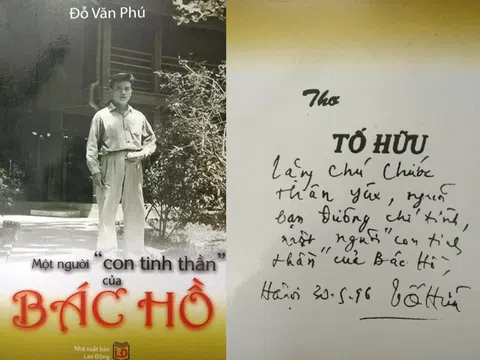 Đỗ Văn Phú
Một người "con tinh thần"
của
BÁC HỒ
Nhà xuất bản
Lao Động
LĐ
Thơ
TỐ HỮU
Tặng chú Chước
thân yêu, người
bạn đường chí tình,
một "người con tinh
thần" của Bác Hồ,
Hà Nội 20-5-96 Tố Hữu